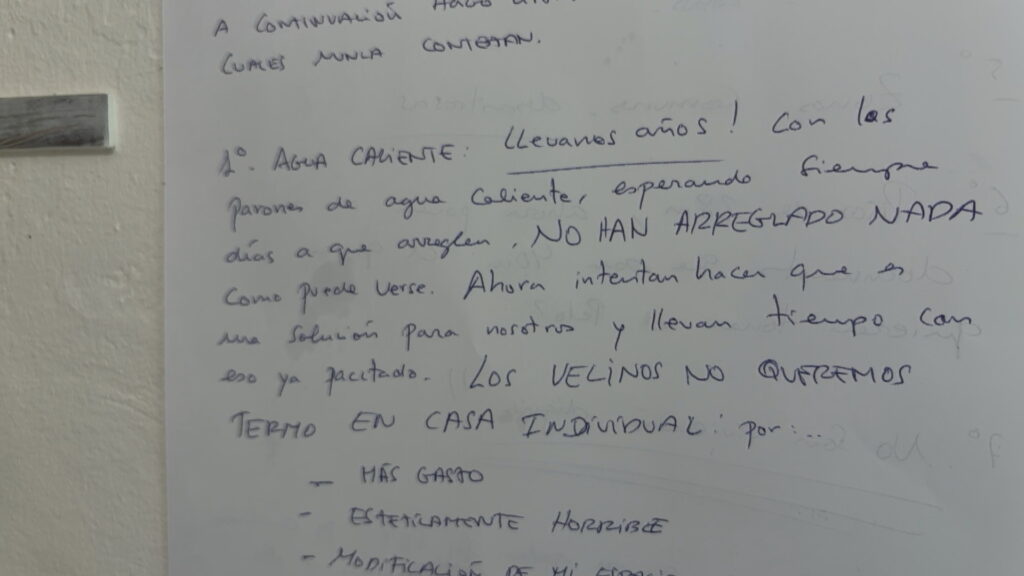 A CONTINUACIÓN HAGO
CUALES NUNCA CONTESTAN.
1º. AGUA CALIENTE: Llevamos años! Con los
parones de agua caliente, esperando siempre
días a que arreglen. NO HAN ARREGLADO NADA
como puede verse. Ahora intentan hacer que es
una solución para nosotros y llevan tiempo con
eso ya pactado. LOS VECINOS NO QUEREMOS
TERMO EN CASA INDIVIDUAL: por:...
- MÁS GASTO
- ESTETICAMENTE HORRIBLE
- MODIFICACIÓN DE MI ESPACIO